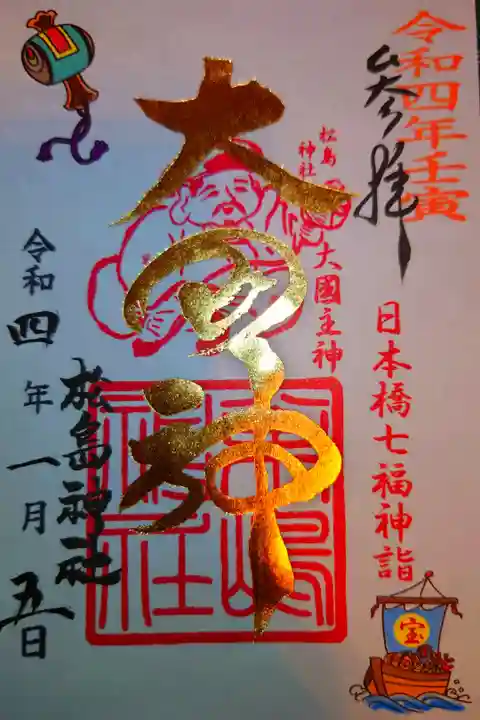 令和四年壬寅
参拝
日本橋七福神詣
松島神社
大國主神
大黒神
松島神社
令和四年一月五日
宝